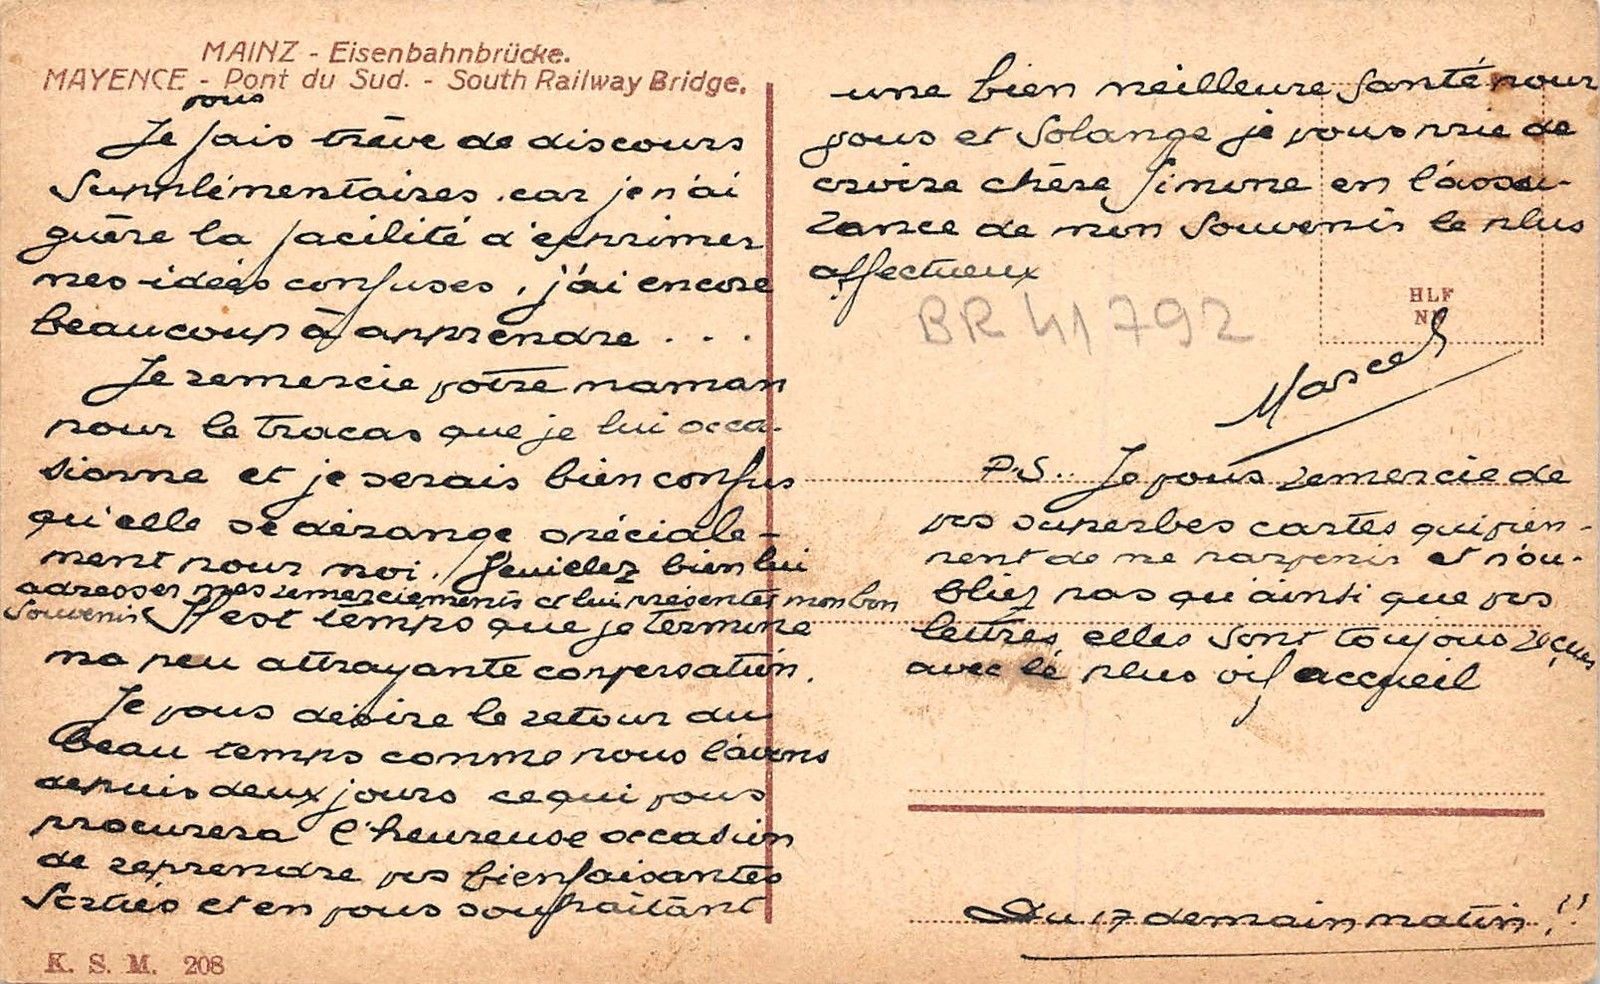 MAINZ - Eisenbahnbrücke.
MAYENCE - Pont du Sud. - South Railway Bridge.
vous
Je fais trêve de discours
supplémentaires. car je n'ai
guère la facilité d'exprimer
mes idées confuses, j'ai encore
beaucoup à apprendre . . .
Je remercie votre maman
pour le tracas que je lui occa-
sionne et je serais bien confus
qu'elle se dérange spéciale-
ment pour moi. Veuillez bien lui
adresser mes remerciements et lui présenter mon bon
souvenir Il est temps que je termine
ma peu attrayante conversation.
Je vous désire le retour du
beau temps comme nous l'avons
depuis deux jours ce qui vous
procurera l'heureuse occasion
de reprendre vos bienfaisantes
sorties et en vous souhaitant
une bien meilleure santé pour
vous et Solange je vous prie de
croire chère Simone en l'assu-
rance de mon souvenir le plus
affectueux
BR 41792
HLF
Marcel
P.S.. Je vous remercie de
vos superbes cartes qui vien-
nent de me parvenir et n'ou-
bliez pas qu'ainsi que vos
lettres, elles sont toujours reçues
avec le plus vif accueil
Du 17 demain matin !!
K. S. M. 208